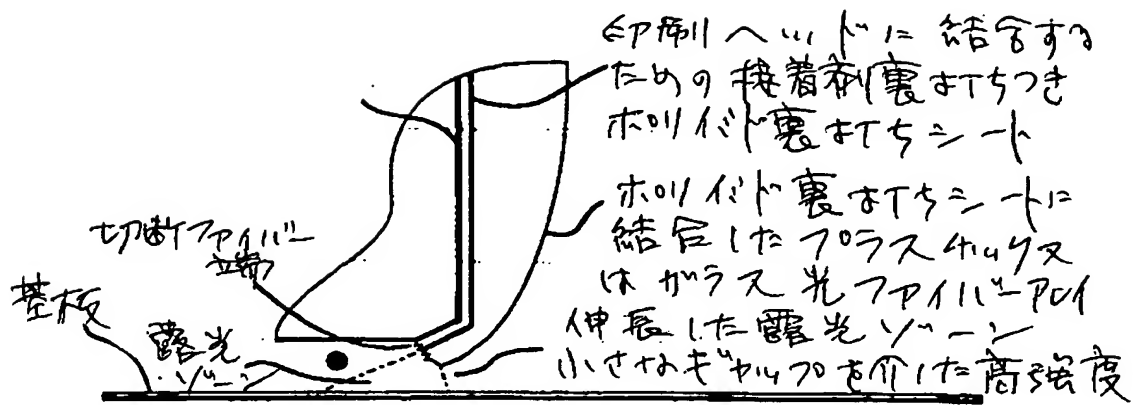 印刷ヘッドに結合する
ための接着剤裏打ちつき
ポリイミド裏打ちシート
ポリイミド裏打ちシートに
結合したプラスチック又
はガラス光ファイバーアレイ
伸長した露光ゾーン
小さなギャップを介した高強度
切断ファイバー
端
基板
露光
ゾーン